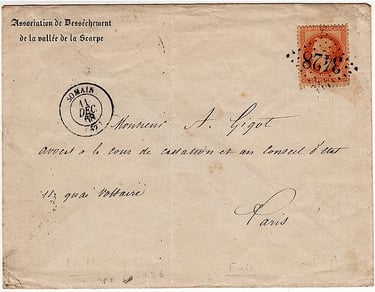 Association de Dessèchement
de la vallée de la Scarpe
3428
SOMAIN
11
DEC
Monsieur A. Gigot
avocat à la cour de cassation et au Conseil d'état
quai Voltaire
Paris